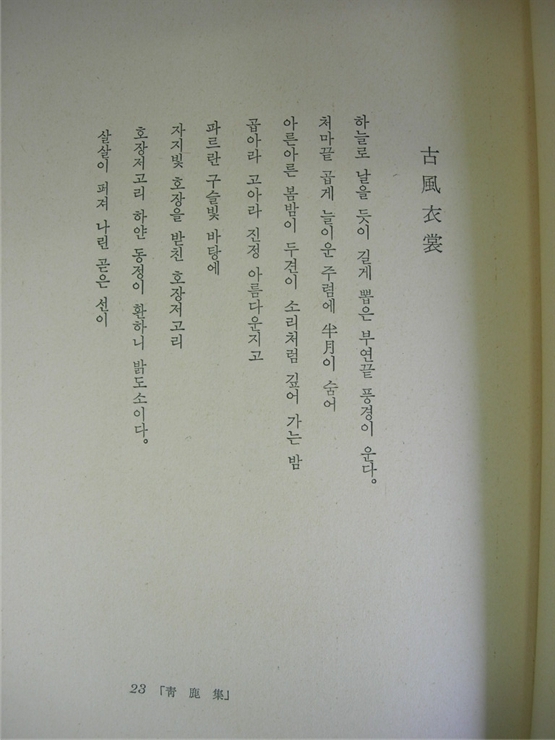 古風衣裳
하늘로 날을 듯이 길게 뽑은 부연끝 풍경이 운다。
처마끝 곱게 늘이운 주렴에 半月이 숨어
아른아른 봄밤이 두견이 소리처럼 깊어 가는 밤
곱아라 고아라 진정 아름다운지고
파르란 구슬빛 바탕에
자지빛 호장을 받친 호장저고리
호장저고리 하얀 동정이 환하니 밝도소이다。
살살이 퍼져 나린 곧은 선이
23 「靑鹿集」